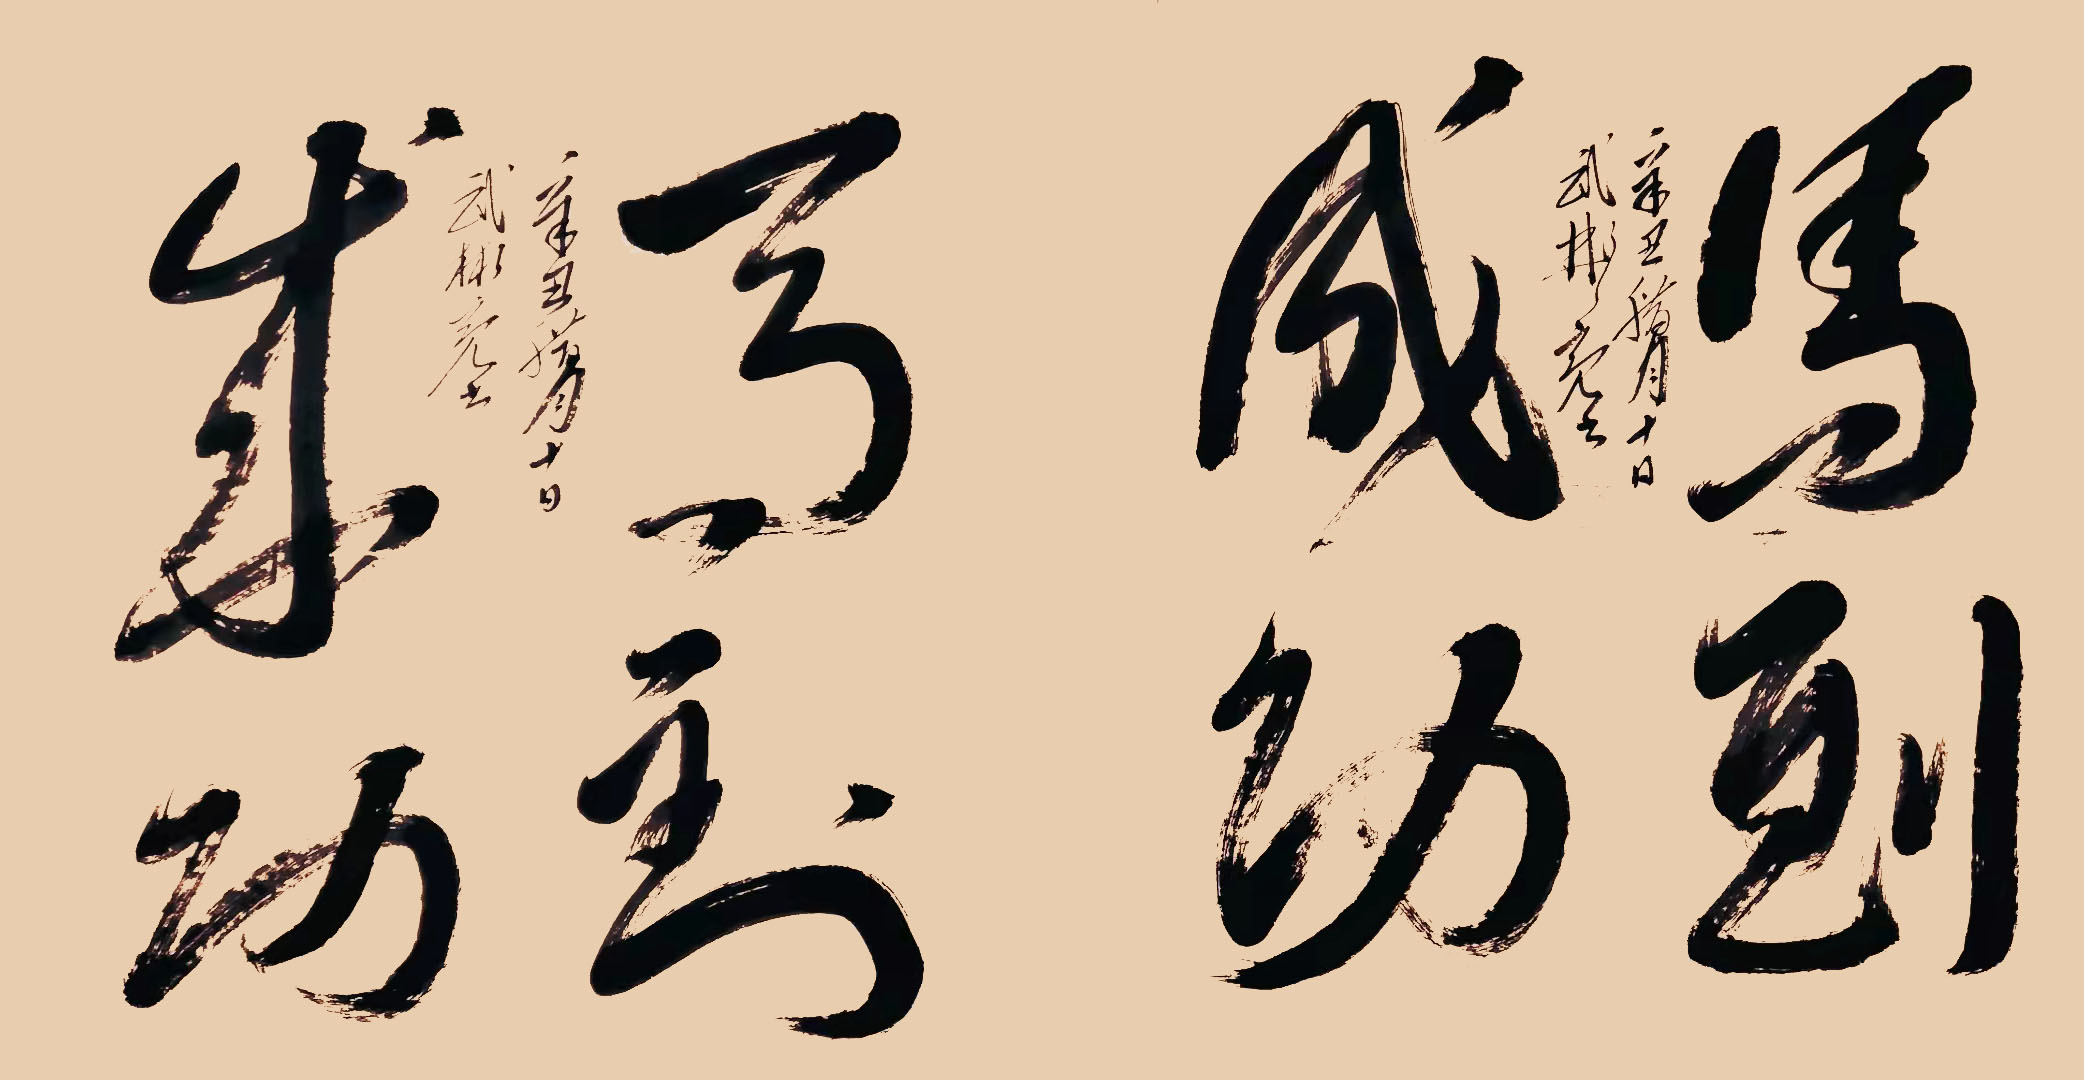 馬到
辛丑腊月十日
武彬亮书
成功
馬到
辛丑腊月十日
武彬亮书
成功